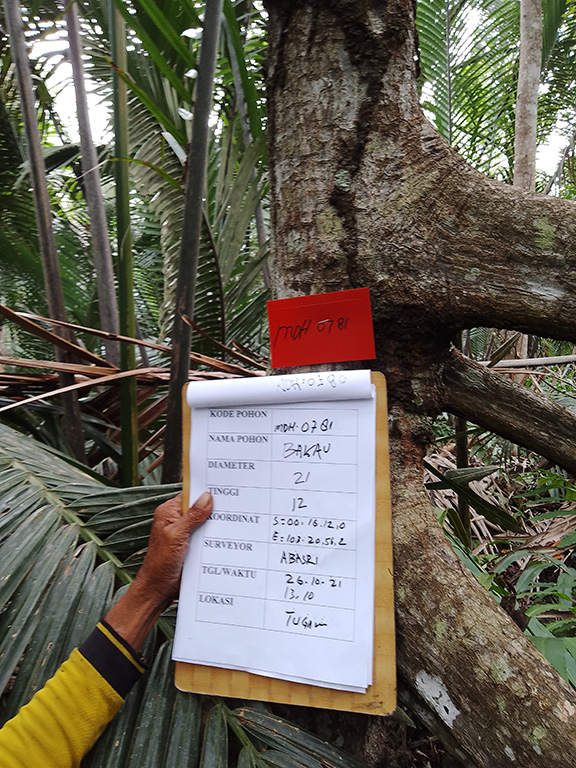 MDH 0781
KODE POHON MDH.0781
NAMA POHON BAKAU
DIAMETER 21
TINGGI 12
KOORDINAT S=00.16.12,0
E=103.20.56.2
SURVEYOR ABASRI
TGL/WAKTU 26.10.21
13.10
LOKASI